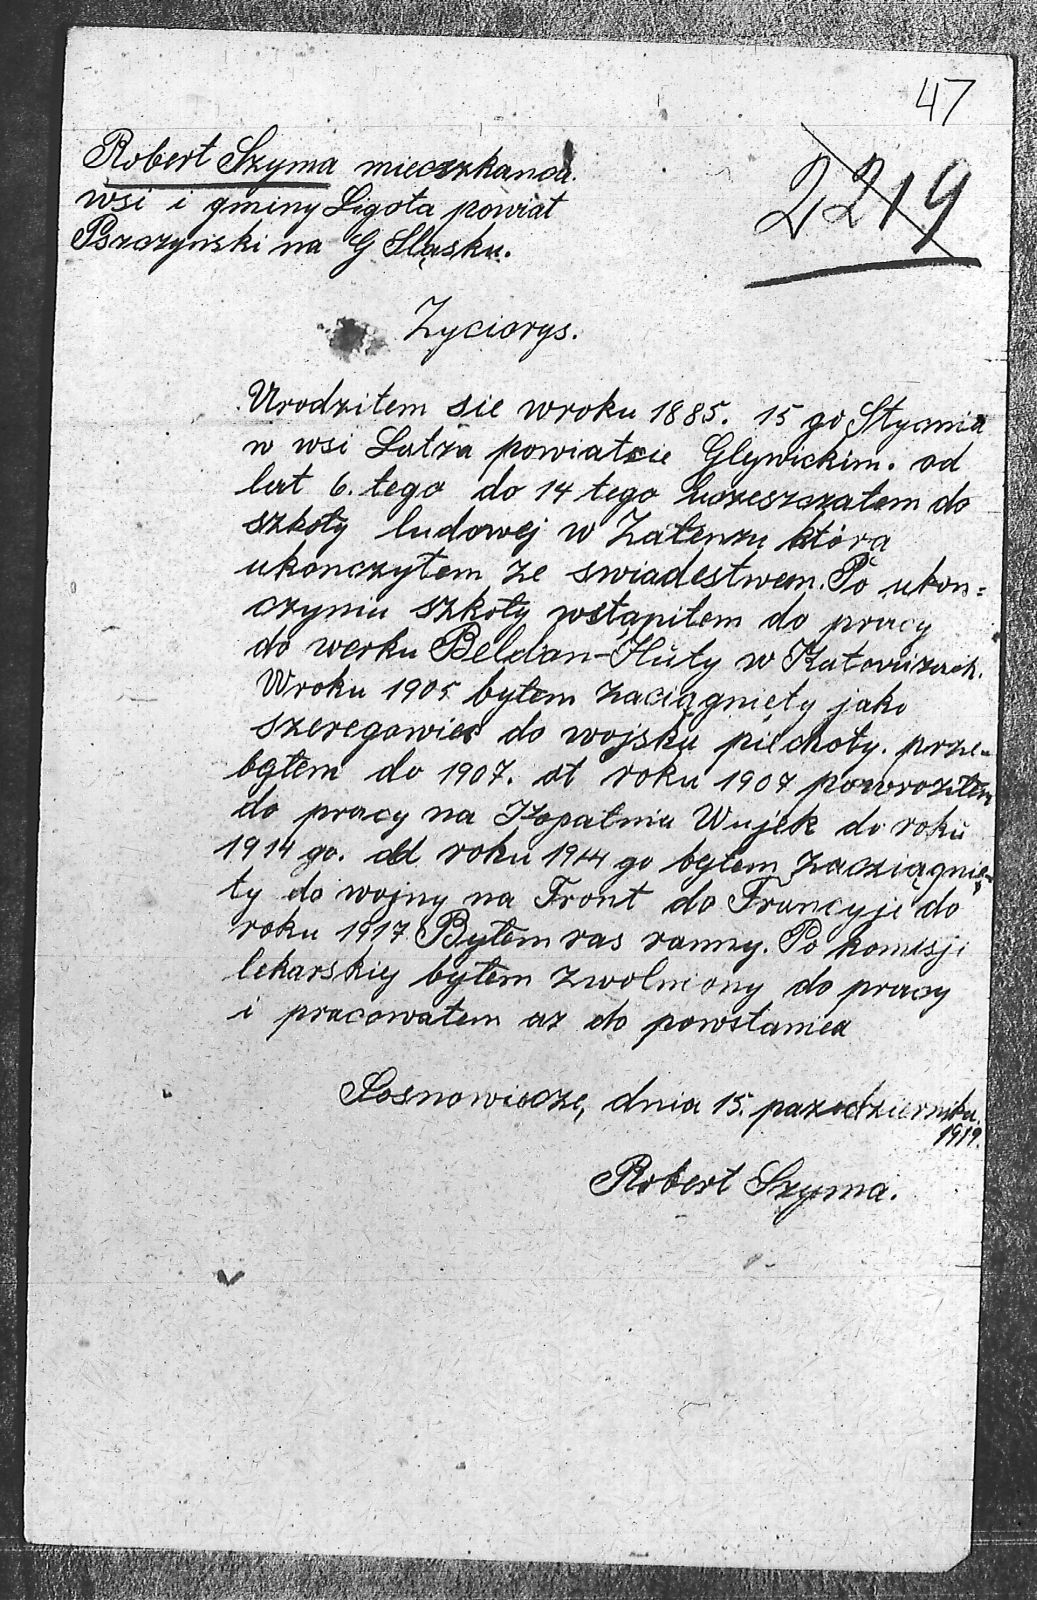 47
2219
Robert Szyma mieczkanca
wsi i gminy Ligota powiat
Pszczyński na G Sląsku.
Zyciorys.
Urodziłem sie w roku 1885. 15 go Stycnia
w wsi Łatza powiatcie Glywickim. od
lat 6. tego do 14 tego uczeszczałem do
szkoły ludowej w Załenzu która
ukonczyłem ze swiadestwem. Po ukon=
czyniu szkoły wstąpiłem do pracy
do werku Beldon-Huty w Katowizach.
W roku 1905 byłem zaciągnięty jako
szeregowiec do wojska piechoty. prze-
byłem do 1907. ot roku 1907 powroziłem
do pracy na Kopalnia Wujek do roku
1914 go. od roku 1914 go byłem zacziągnię-
ty do wojny na Front do Francyji do
roku 1917 Byłem ras ranny. Po komisji
lekarskiej byłem zwolniony do pracy
i pracowałem az do powstania
Sosnowiecze, dnia 15. pazedziernika.
1919.
Robert Szyma.